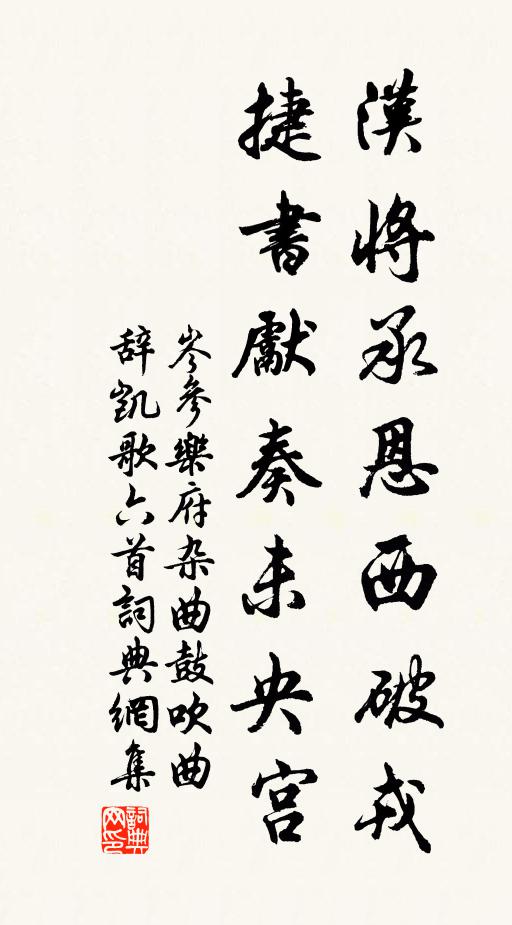 漢將承恩西破戎
捷書獻奏未央宮
岑參樂府杂曲鼓吹曲
辞凱歌六首詞典網集
詞典网印